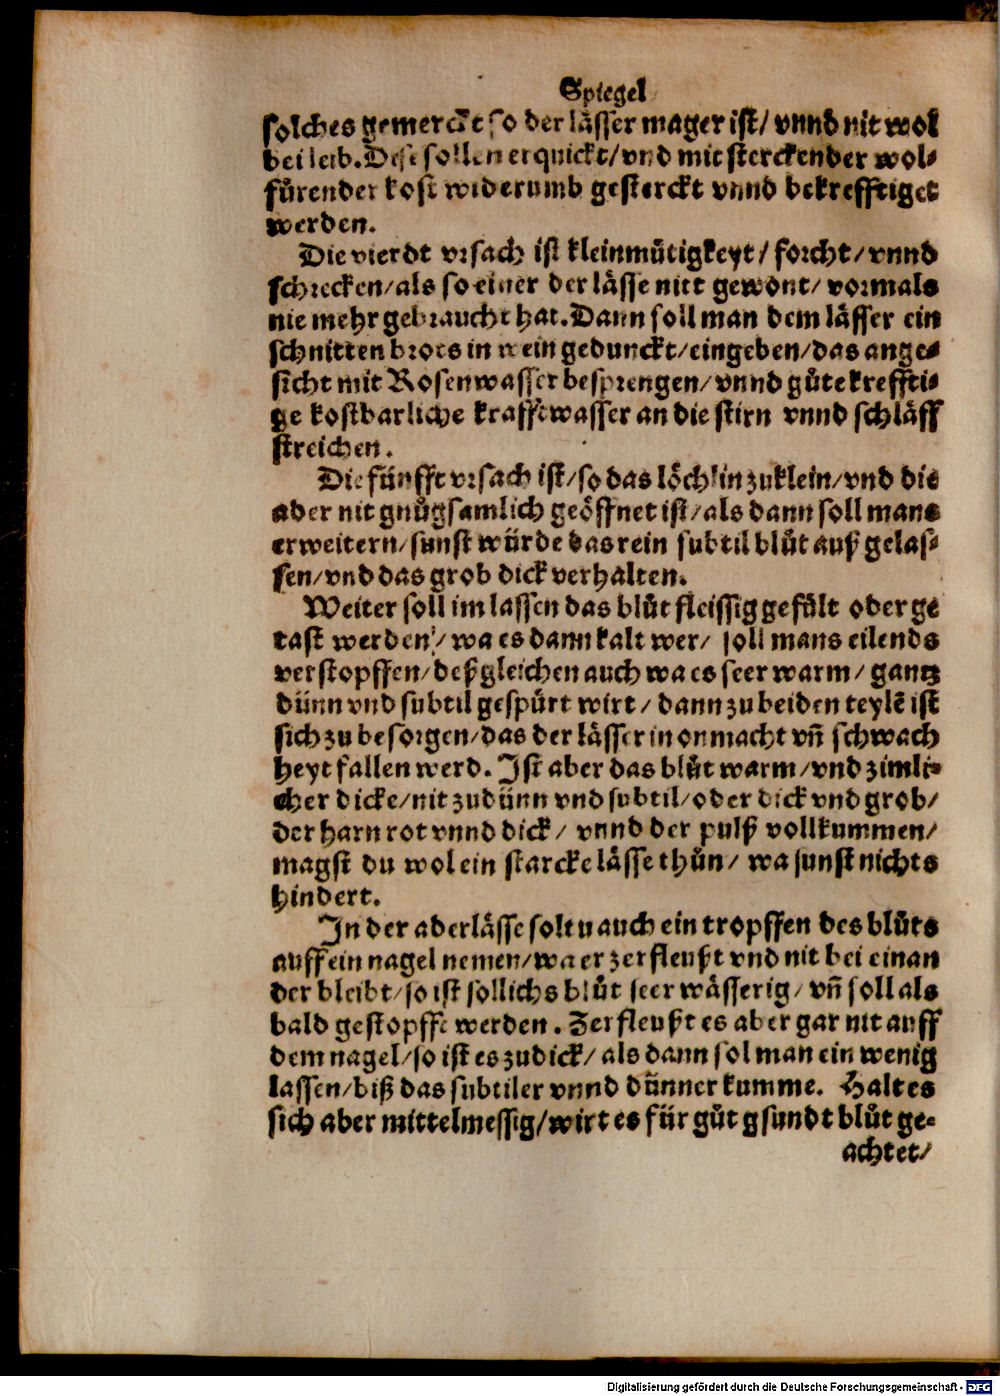 Spiegel
solches gemerckt so der lässer mager ist/ vnnd nit wol
bei leib. Dise sollen erquickt/ vnd mit sterckender wol-
fürender kost widerumb gesterckt vnnd bekrefftiget
werden.
Die vierdt vrsach ist kleinmütigkeyt/ forcht/ vnnd
schrecken/ als so einer der lässe nitt gewont/ vormals
nie mehr gebraucht hat. Dann soll man dem lässer ein
schnitten brots in wein gedunckt/ eingeben/ das ange-
sicht mit Rosenwasser besprengen/ vnnd gůte kreffti-
ge kostbarliche krafftwasser an die stirn vnnd schläff
streichen.
Die fünfft vrsach ist/ so das löchlin zuklein/ vnd die
ader nit gnůgsamlich geöffnet ist/ als dann soll mans
erweitern/ sunst würde das rein subtil blůt auß gelas-
sen/ vnd das grob dick verhalten.
Weiter soll im lassen das blůt fleissig gefült oder ge
tast werden/ wa es dann kalt wer/ soll mans eilends
verstopffen/ deßgleichen auch wa es seer warm/ gantz
dünn vnd subtil gespürt wirt/ dann zu beiden teylē ist
sich zu besorgen/ das der lässer in onmacht vn̄ schwach
heyt fallen werd. Ist aber das blůt warm/ vnd zimli-
cher dicke/ nit zudünn vnd subtil/ oder dick vnd grob/
der harn rot vnnd dick/ vnnd der pulß vollkummen/
magst du wol ein starcke lässe thůn/ wa sunst nichts
hindert.
In der aderlässe soltu auch ein tropffen des blůts
auff ein nagel nemen/ wa er zerfleußt vnd nit bei einan
der bleibt/ so ist sollichs blůt seer wässerig/ vn̄ soll als
bald gestopfft werden. Zerfleußt es aber gar nit auff
dem nagel/ so ist es zudick/ als dann sol man ein wenig
lassen/ biß das subtiler vnnd dünner kumme. Halt es
sich aber mittelmessig/ wirt es für gůt gsundt blůt ge-
achtet/
Digitalisierung gefördert durch die Deutsche Forschungsgemeinschaft - DFG